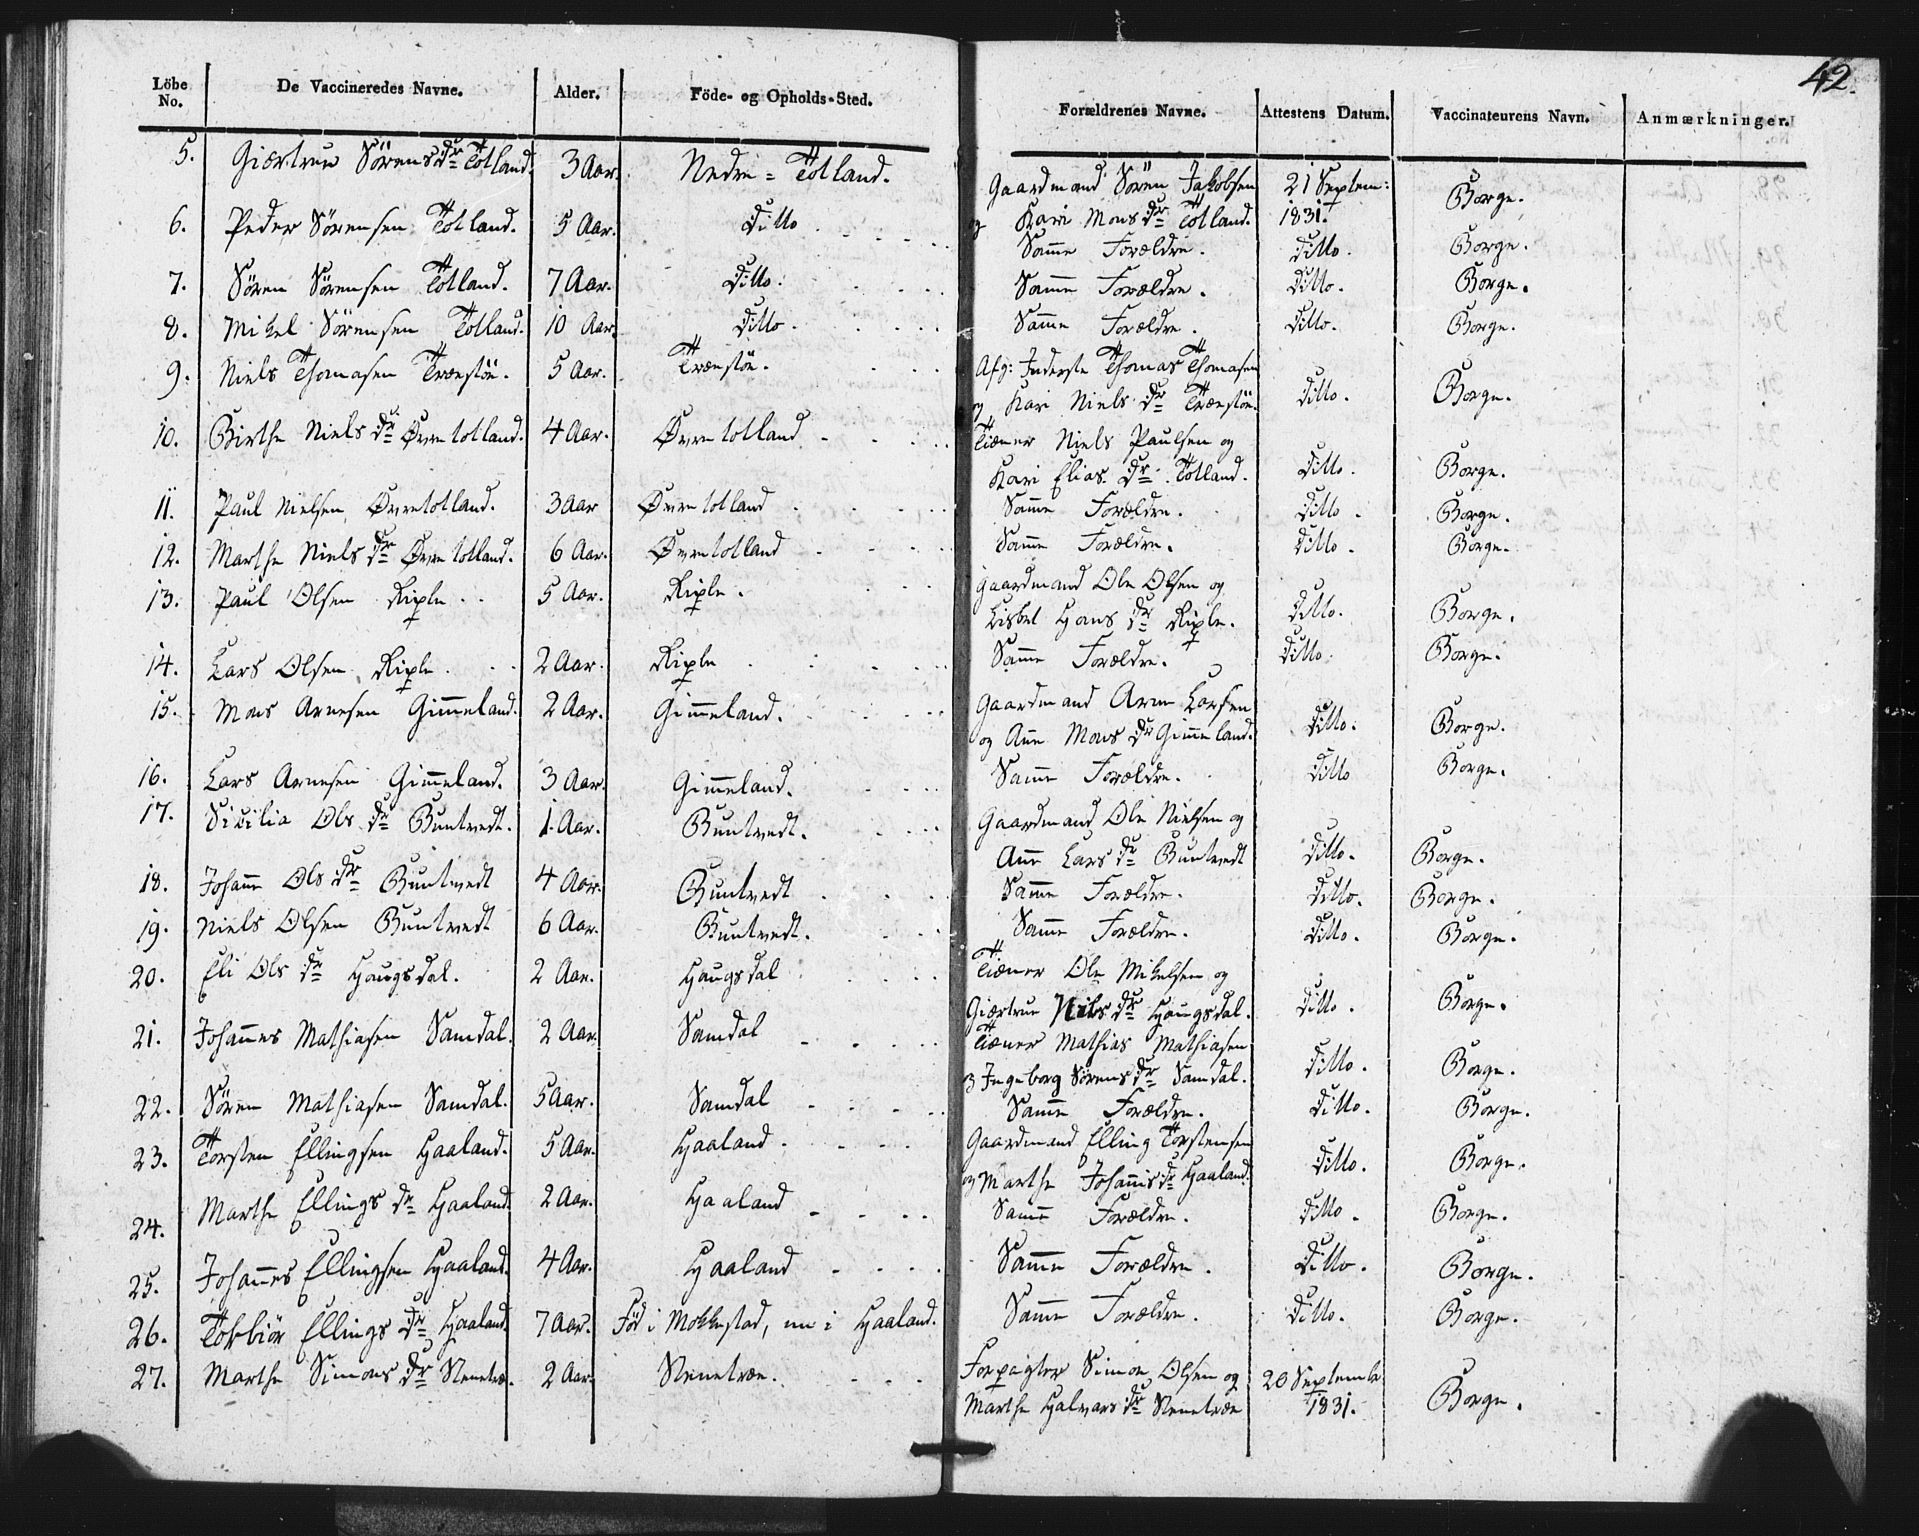 42.
Löbe No. De Vaccineredes Navne. Alder. Föde- og Opholds-Sted. Forældrenes Navne. Attestens Datum. Vaccinateurens Navn. Anmærkninger.
5. Giærtrue Sörens dr Totland. 3 Aar. Nedre=Totland. Gaardmand Sören Jakobsen 21 Septem: Borge.
og Kari Mons dr Totland. 1831.
6. Peder Sörensen Totland. 5 Aar. Ditto Samme Forældre. Ditto. Borge.
7. Sören Sörensen Totland. 7 Aar. Ditto. Samme Forældre. Ditto. Borge.
8. Mikel Sörensen Totland. 10 Aar. Ditto. Samme Forældre. Ditto. Borge.
9. Niels Thomasen Trænstöe. 5 Aar. Trænstöe. Afg: Inderste Thomas Thomasen
og Kari Niels dr Trænstöe. Ditto. Borge.
10. Birthe Niels dr Øvretotland. 4 Aar. Øvretotland Tiæner Niels Paulsen og
Kari Elias dr Totland. Ditto. Borge.
11. Paul Nielsen Øvretotland. 3 Aar Øvretotland Samme Forældre. Ditto. Borge.
12. Marthe Niels dr Øvretotland. 6 Aar. Øvretotland Samme Forældre. Ditto. Borge.
13. Paul Olsen Riple. 5 Aar. Riple. Gaardmand Ole Olsen og
Lisbet Hans dr Riple. Ditto. Borge.
14. Lars Olsen Riple. 2 Aar. Riple Samme Forældre. Ditto. Borge.
15. Mons Arnesen Gim̅eland. 2 Aar. Gim̅eland. Gaardmand Arne Larsen
og Ane Mons dr Gim̅eland. Ditto. Borge.
16. Lars Arnesen Gim̅eland. 3 Aar. Gim̅eland. Samme Forældre. Ditto Borge.
17. Sicilia Ols dr Buntvedt. 1. Aar. Buntvedt. Gaardmand Ole Nielsen og
Ane Lars dr Buntvedt Ditto. Borge.
18. Johanne Ols dr Buntvedt 4 Aar. Buntvedt Samme Forældre. Ditto. Borge.
19. Niels Olsen Buntvedt 6 Aar. Buntvedt. Samme Forældre. Ditto. Borge.
20. Eli Ols dr Haugsdal. 2 Aar. Haugsdal Tiæner Ole Mikelsen og
Giærtrue Niels dr Haugsdal. Ditto. Borge.
21. Johannes Mathiasen Samdal. 2 Aar. Samdal Tiæner Mathias Mathiasen
og Ingeborg Sörens dr Samdal. Ditto. Borge.
22. Sören Mathiasen Samdal. 5 Aar. Samdal Samme Forældre. Ditto. Borge.
23. Torsten Ellingsen Haaland. 5 Aar. Haaland. Gaardmand Elling Torstensen
og Marthe Johannis dr Haaland. Ditto. Borge.
24. Marthe Ellings dr Haaland. 2 Aar. Haaland Samme Forældre. Ditto. Borge.
25. Johannes Ellingsen Haaland. 4 Aar. Haaland Samme Forældre. Ditto. Borge.
26. Ellings dr Haaland. 7 Aar. Föd i Mokkestad, nu i Haaland. Samme Forældre. Ditto. Borge.
27. Marthe Simons dr Stenetræ. 2 Aar. Stenetræe. Forpagter Simon Olsen og 20 Septembr
Marthe Halvars dr Stenetræe 1831. Borge.